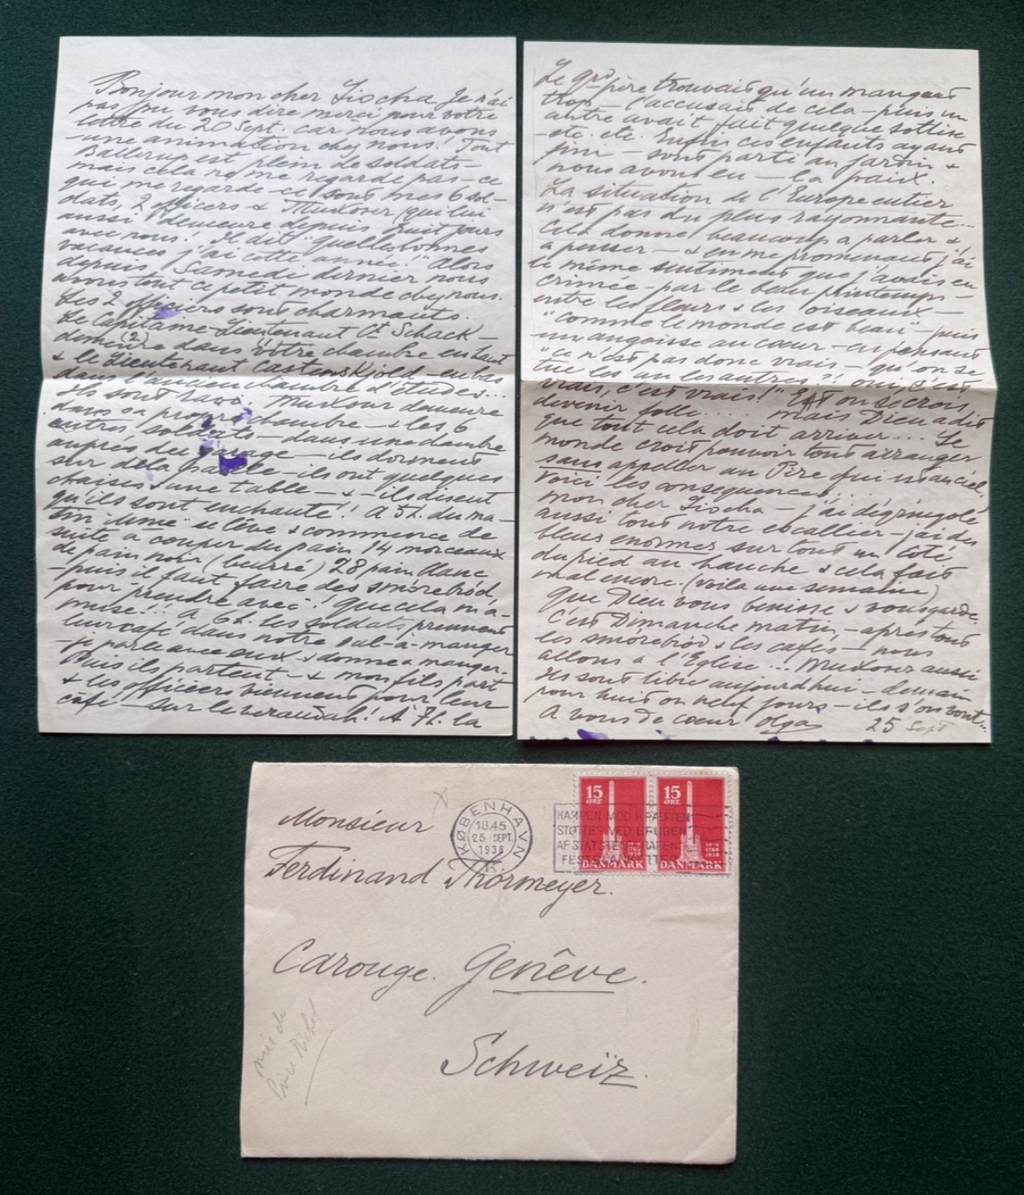 Bonjour mon cher Siocha Je n'ai
pas pu vous dire merci pour votre
lettre du 20 Sept. car nous avons
une animation chez nous! Tout
Ballerup est plein de soldats –
mais cela ne me regarde pas – ce
qui me regarde – ce sont mes 6 sol-
dats, 2 officers & (qui lui
aussi demeure depuis huit jours
avec nous. Il dit "quelles bonnes
vacances j'ai cette année!" Alors
depuis Samedi dernier nous
avons tout ce petit monde chez nous.
Les 2 officiers sont charmants.
Le Capitaine-Lieutenant Ct Schack –
demeure (2) dans votre chambre en haut
& le Lieutenant Castenskjold – en bas
dans l'ancienne chambre d'études...
Ils sont demeure
dans sa propre chambre – & les 6
autres soldats – dans une chambre
auprès du – ils dorment
sur de la paille – ils ont quelques
chaises & une table – & – ils disent
qu'ils sont enchanté!! A 5h. du ma-
tin se lève & commence de
suite a couper du pain 14 morceaux
de pain noir (beurré) 28 pain blanc
– puis il faut faire des smörebröd
pour prendre avec! Que cela m'a-
muse!! à 6h. les soldats prennent
leur café dans notre sal-à-manger
– je parle avec eux & donne a manger.
Puis ils partent – & mon fils part
& les officiers viennent pour leur
café – sur le verandah! A 7h. la
Le gr. père trouvait qu'un mangeait
trop – l'accusait de cela – puis un
autre avait fait quelque sottise
etc. etc. Enfin ces enfants ayant
fini – sont parti au jardin &
nous avons eu – la paix.
La situation de l'Europe entier
n'est pas du plus rayonnante...
Cela donne beaucoup a parler &
a penser – & en me promenant j'ai
le même sentiment que j'avais en
Crimée – par le beau printemps –
entre les fleurs & les oiseaux –
"comme le monde est beau" – puis
un angoisse au coeur – en pensant
"ce n'est pas donc vrais – qu'on se
tue les un les autres – oui, c'est
vrais, c'est vrais! on se crois
devenir folle.... mais Dieu a dit
que tout cela doit arriver... Le
monde croit pouvoir tous arranger
sans appeller au Père qui est au ciel.
Voici les consequences...
mon cher Siocha – j'ai dégringolé
aussi tous notre escallier – j'ai des
bleus enormes sur tout un côté
du pied au hanche & cela fait
mal encore. (voila une semaine)
que Dieu vous benisse & vous garde.
C'est Dimanche matin, – apres tous
les smörebröd & les cafés – nous
allons a l'Eglise... aussi
Ils sont libre aujourdhui – demain
pour huit ou neuf jours – ils s'en vont
A vous de coeur Olga 25 Sept
KØBENHAVN
18.45
25. SEPT.
1938
K.
KAMPEN MOD KRÆFTEN
STØTTES VED BRUGEN
AF
15
ØRE
DANMARK
15
ØRE
DANMARK
Monsieur
Ferdinand Thormeyer.
Carouge. Genève.
Schweiz.